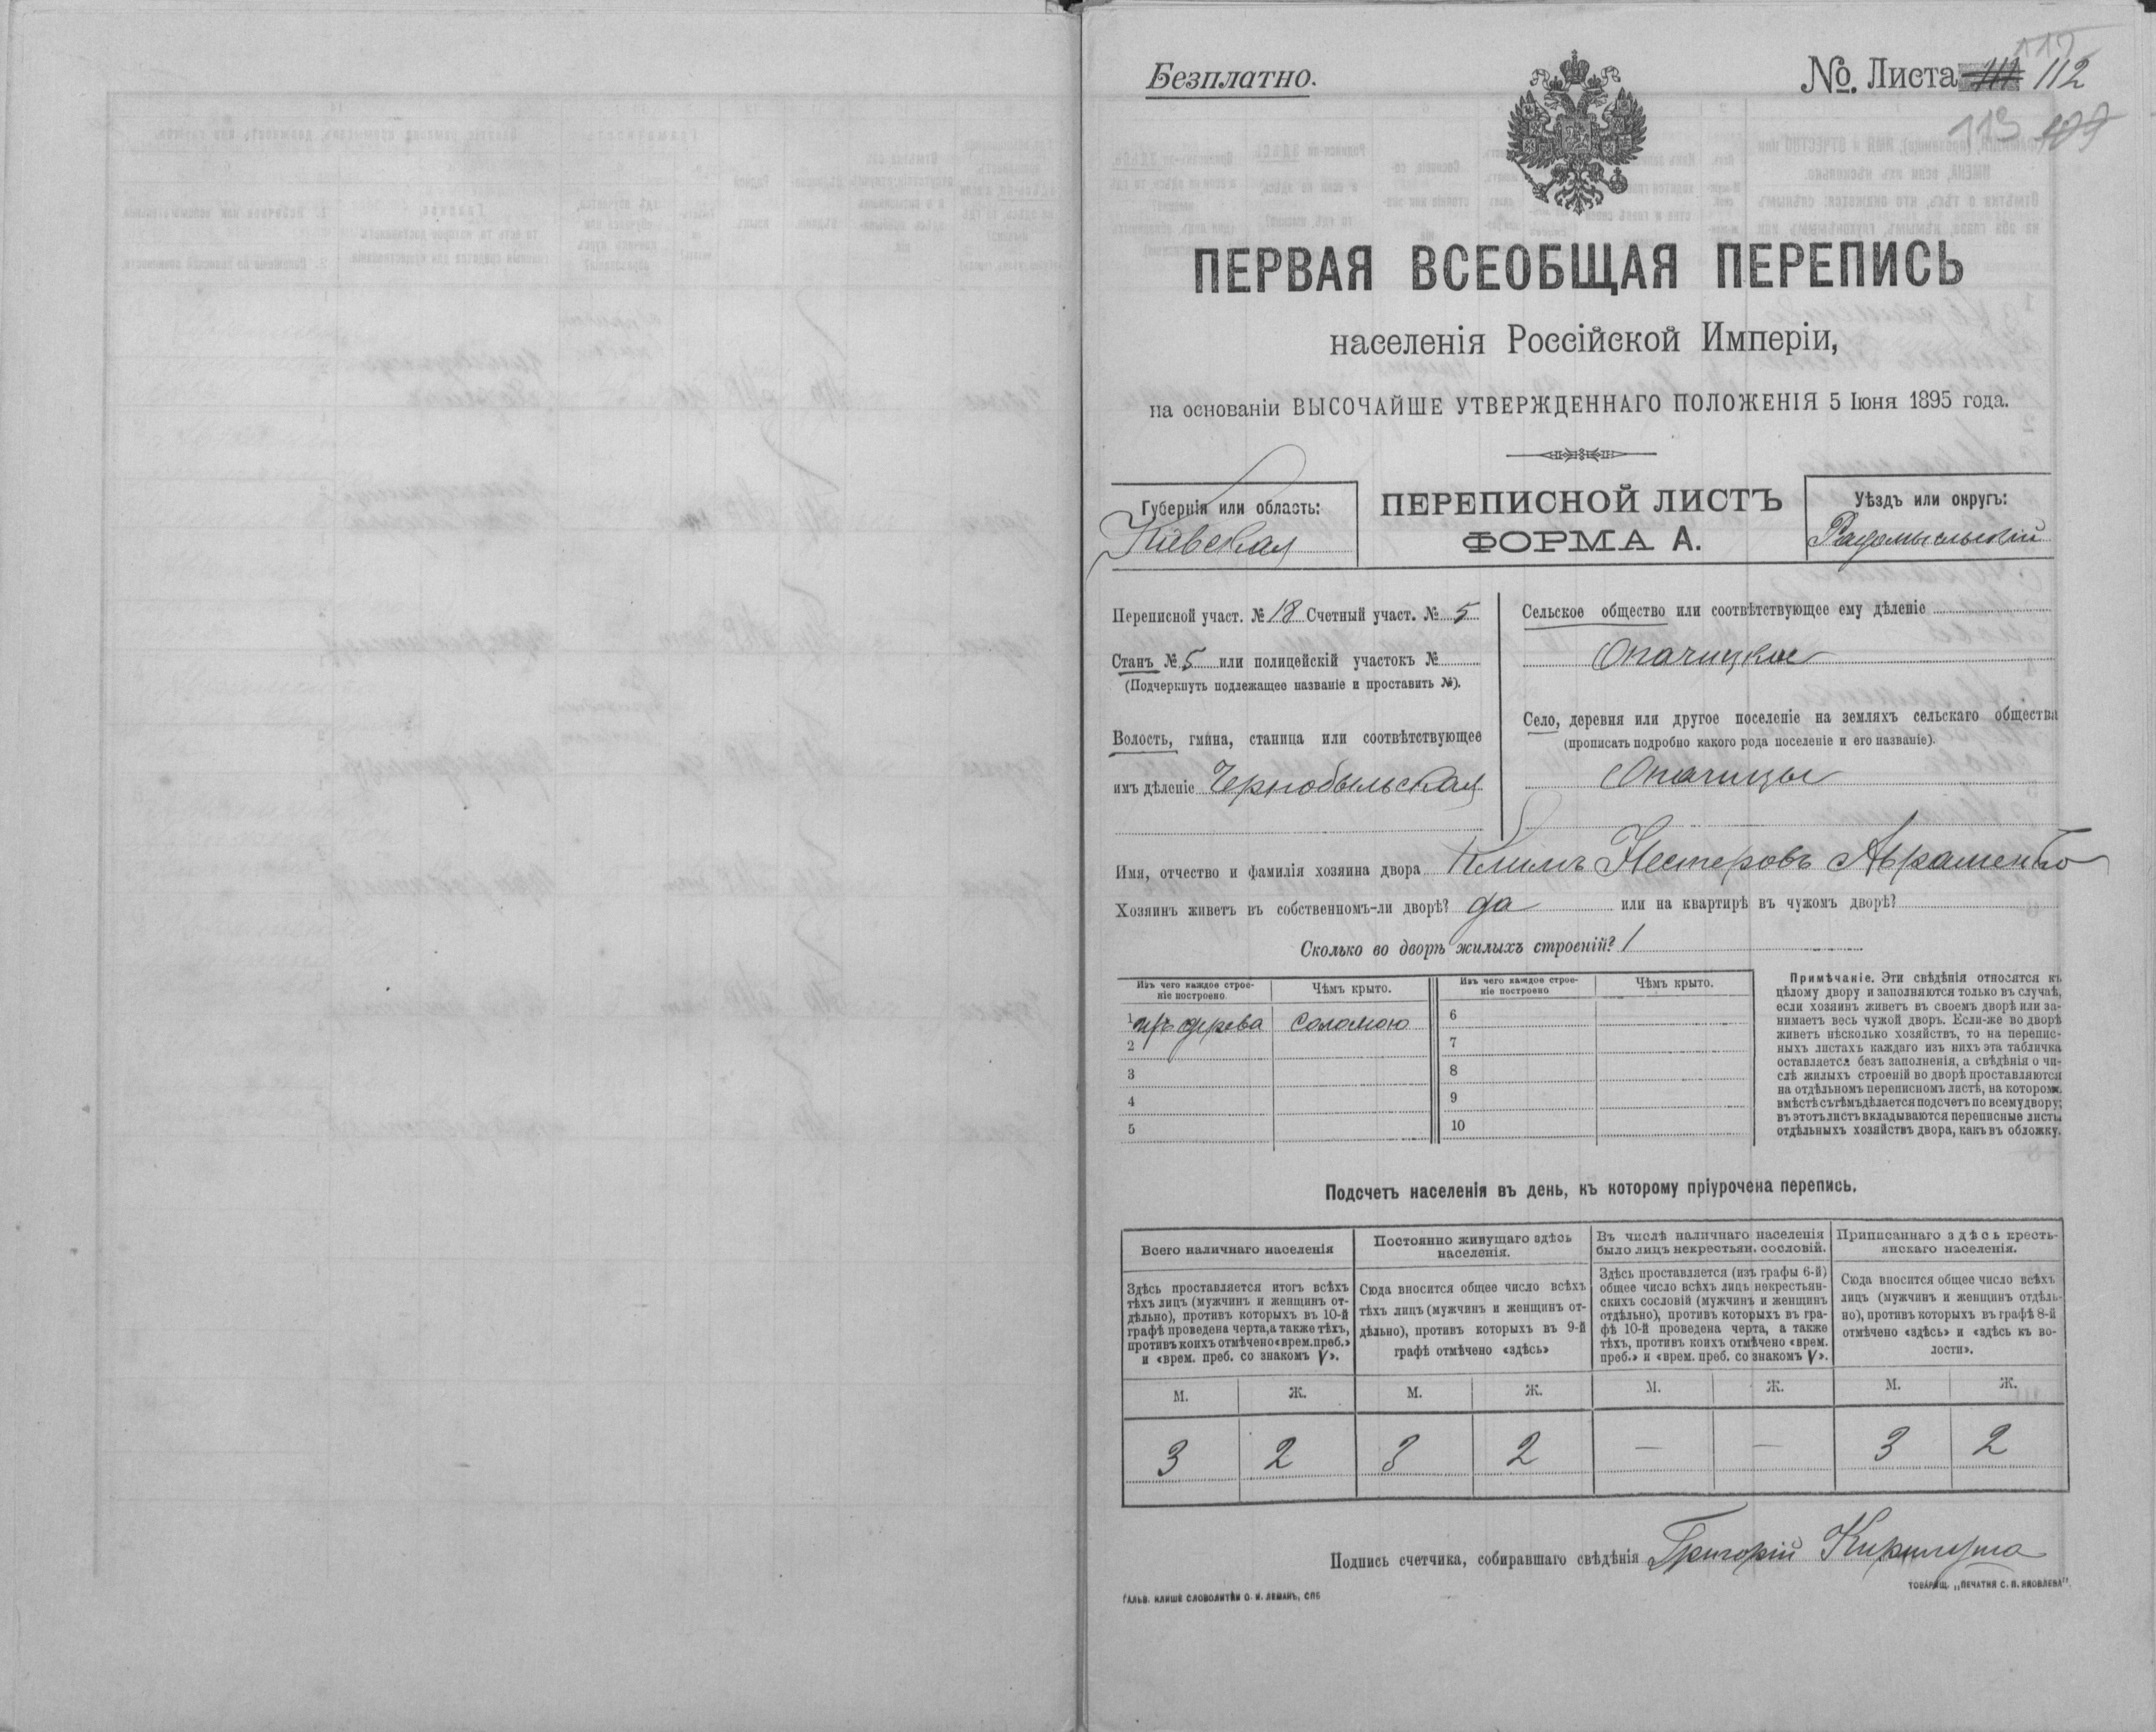 Безплатно.
№. Листа 112
113
ПЕРВАЯ ВСЕОБЩАЯ ПЕРЕПИСЬ
населенія Россійской Имперіи,
на основаніи ВЫСОЧАЙШЕ УТВЕРЖДЕННАГО ПОЛОЖЕНІЯ 5 Іюня 1895 года.
Губернія или область:
Кіевская
ПЕРЕПИСНОЙ ЛИСТЪ
ФОРМА А.
Уѣздъ или округъ:
Радомысльскій
Переписной участ. № 18 Счетный участ. № 5
Станъ № 5 или полицейскій участокъ №
(Подчеркнуть подлежащее названіе и проставить №).
Волость, гмина, станица или соотвѣтствующее
имъ дѣленіе Чернобыльская
Сельское общество или соотвѣтствующее ему дѣленіе
Опачицкое
Село, деревня или другое поселеніе на земляхъ сельскаго общества
(прописать подробно какого рода поселеніе и его названіе).
Опачицы
Имя, отчество и фамилія хозяина двора Климъ Нестеровъ Авраменко
Хозяинъ живетъ въ собственномъ-ли дворѣ? да или на квартирѣ въ чужомъ дворѣ?
Сколько во дворѣ жилыхъ строеній? 1
Изъ чего каждое строе-
ніе построено
Чѣмъ крыто.
Изъ чего каждое строе-
ніе построено
Чѣмъ крыто.
1 изъ дерева соломою 6
2 7
3 8
4 9
5 10
Примѣчаніе. Эти свѣдѣнія относятся къ
цѣлому двору и заполняются только въ случаѣ,
если хозяинъ живетъ въ своемъ дворѣ или за-
нимаетъ весь чужой дворъ. Если-же во дворѣ
живетъ нѣсколько хозяйствъ, то на перепис-
ныхъ листахъ каждаго изъ нихъ эта табличка
оставляется безъ заполненія, а свѣдѣнія о чи-
слѣ жилыхъ строеній во дворѣ проставляются
на отдѣльномъ переписномъ листѣ, на которомъ
вмѣстѣ съ тѣмъ дѣлается подсчетъ по всему двору;
въ этотъ листъ вкладываются переписные листы
отдѣльныхъ хозяйствъ двора, какъ въ обложку.
Подсчетъ населенія въ день, къ которому пріурочена перепись.
Всего наличнаго населенія
Постоянно живущаго здѣсь
населенія.
Въ числѣ наличнаго населенія
было лицъ некрестьян. сословій.
Приписаннаго здѣсь кресть-
янскаго населенія.
Здѣсь проставляется итогъ всѣхъ
тѣхъ лицъ (мужчинъ и женщинъ от-
дѣльно), противъ которыхъ въ 10-й
графѣ проведена черта, а также тѣхъ,
противъ коихъ отмѣчено «врем. преб.»
и «врем. преб. со знакомъ V».
Сюда вносится общее число всѣхъ
тѣхъ лицъ (мужчинъ и женщинъ от-
дѣльно), противъ которыхъ въ 9-й
графѣ отмѣчено «здѣсь»
Здѣсь проставляется (изъ графы 6-й)
общее число всѣхъ лицъ некрестьян-
скихъ сословій (мужчинъ и женщинъ
отдѣльно), противъ которыхъ въ гра-
фѣ 10-й проведена черта, а также
тѣхъ, противъ коихъ отмѣчено «врем.
преб.» и «врем. преб. со знакомъ V».
Сюда вносится общее число всѣхъ
лицъ (мужчинъ и женщинъ отдѣль-
но), противъ которыхъ въ графѣ 8-й
отмѣчено «здѣсь» и «здѣсь къ во-
лости».
М. Ж. М. Ж. М. Ж. М. Ж.
3 2 3 2 — — 3 2
Подпись счетчика, собиравшаго свѣдѣнія Григорій
ГАЛЬВ. КЛИШЕ СЛОВОЛИТНИ О. И. ЛЕМАНЪ, СПБ
ТОВАРИЩ. „ПЕЧАТНЯ С. П. ЯКОВЛЕВА“.